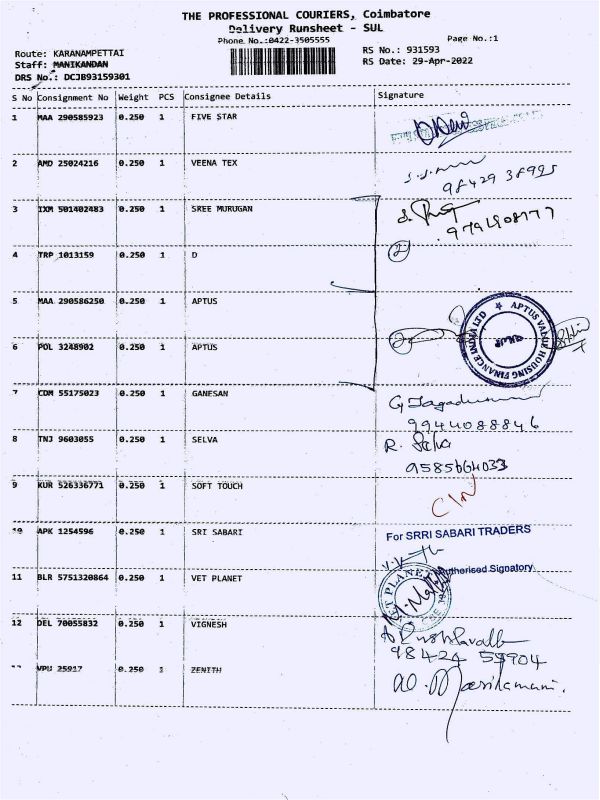 THE PROFESSIONAL COURIERS, Coimbatore
Delivery Runsheet - SUL
Phone No.:0422-3505555
Page No.:1
Route: KARANAMPETTAI
RS No.: 931593
Staff: MANIKANDAN
RS Date: 29-Apr-2022
DRS No.: DCJB93159301
S No Consignment No Weight PCS Consignee Details Signature
1 MAA 290585923 0.250 1 FIVE STAR
2 AMD 25024216 0.250 1 VEENA TEX
98429 38995
3 IXM 501402483 0.250 1 SREE MURUGAN
4 TRP 1013159 0.250 1 D
2
5 MAA 290586250 0.250 1 APTUS
APTUS VALUE HOUSING FINANCE INDIA LTD
6 POL 3248902 0.250 1 APTUS
2
7 CDM 55175023 0.250 1 GANESAN
9944088846
8 TNJ 9603055 0.250 1 SELVA
R. Selva
9585664033
9 KUR 526336771 0.250 1 SOFT TOUCH
10 APK 1254596 0.250 1 SRI SABARI
For SRRI SABARI TRADERS
Authorised Signatory
11 BLR 5751320864 0.250 1 VET PLANET
VET PLANET
12 DEL 70055832 0.250 1 VIGNESH
98424 59904
VPU 25917 0.250 1 ZENITH